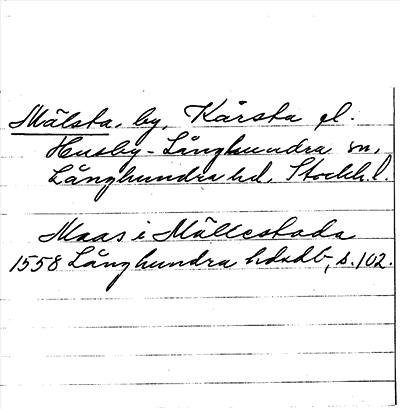 Mälsta, by, Kårsta el.
Husby-Långhundra sn,
Långhundra hd, Stockh. l.
Maas i Mällestada
1558 Långhundra hdsdb, s. 102.